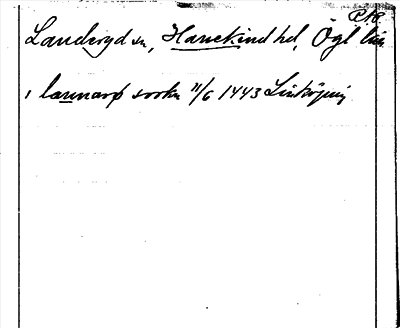 PRC
Landeryd sn, Hanekind hd, Ögl län
i lannarp sookn 11/6 1443 Linköping